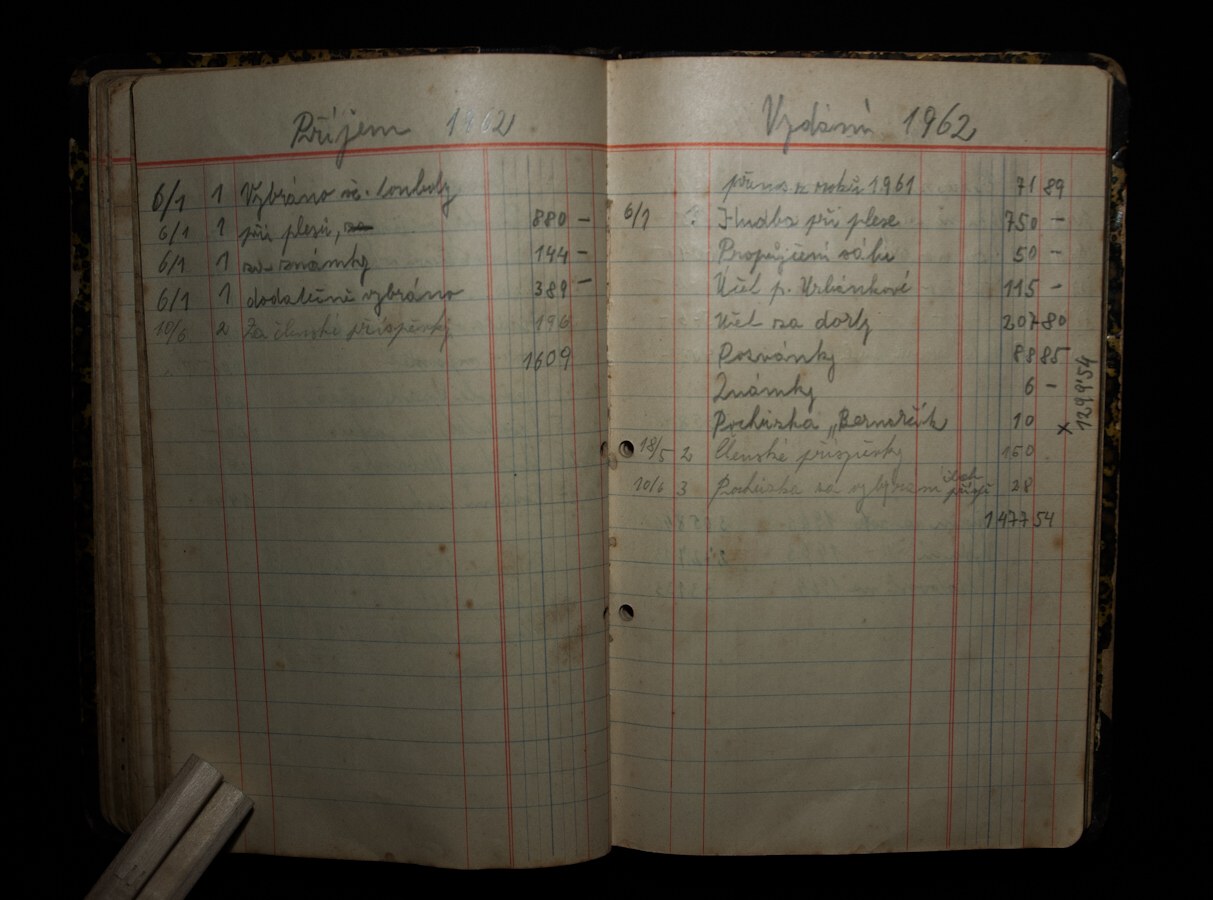 Příjem 1962
6/1 1 Vybráno vč. tomboly
6/1 1 při plesu, 880 —
6/1 1 za známky 144 —
6/1 1 dodatečně vybráno 389 —
10/6 2 Za členské příspěvky 196
1609
Vydání 1962
přenos z roku 1961 71 89
6/1 Hudba při plese 750 —
Propůjčení sálu 50 —
Účet p. Urbánkové 115 —
Účet za dorty 207 80
Pozvánky 88 85
Známky 6 —
Pochůzka „Bernarčík 10
18/5 2 Členské příspěvky 150
10/6 3 Pochůzka za vybírání člen. přísp. 28
1477 54
x 1299'54